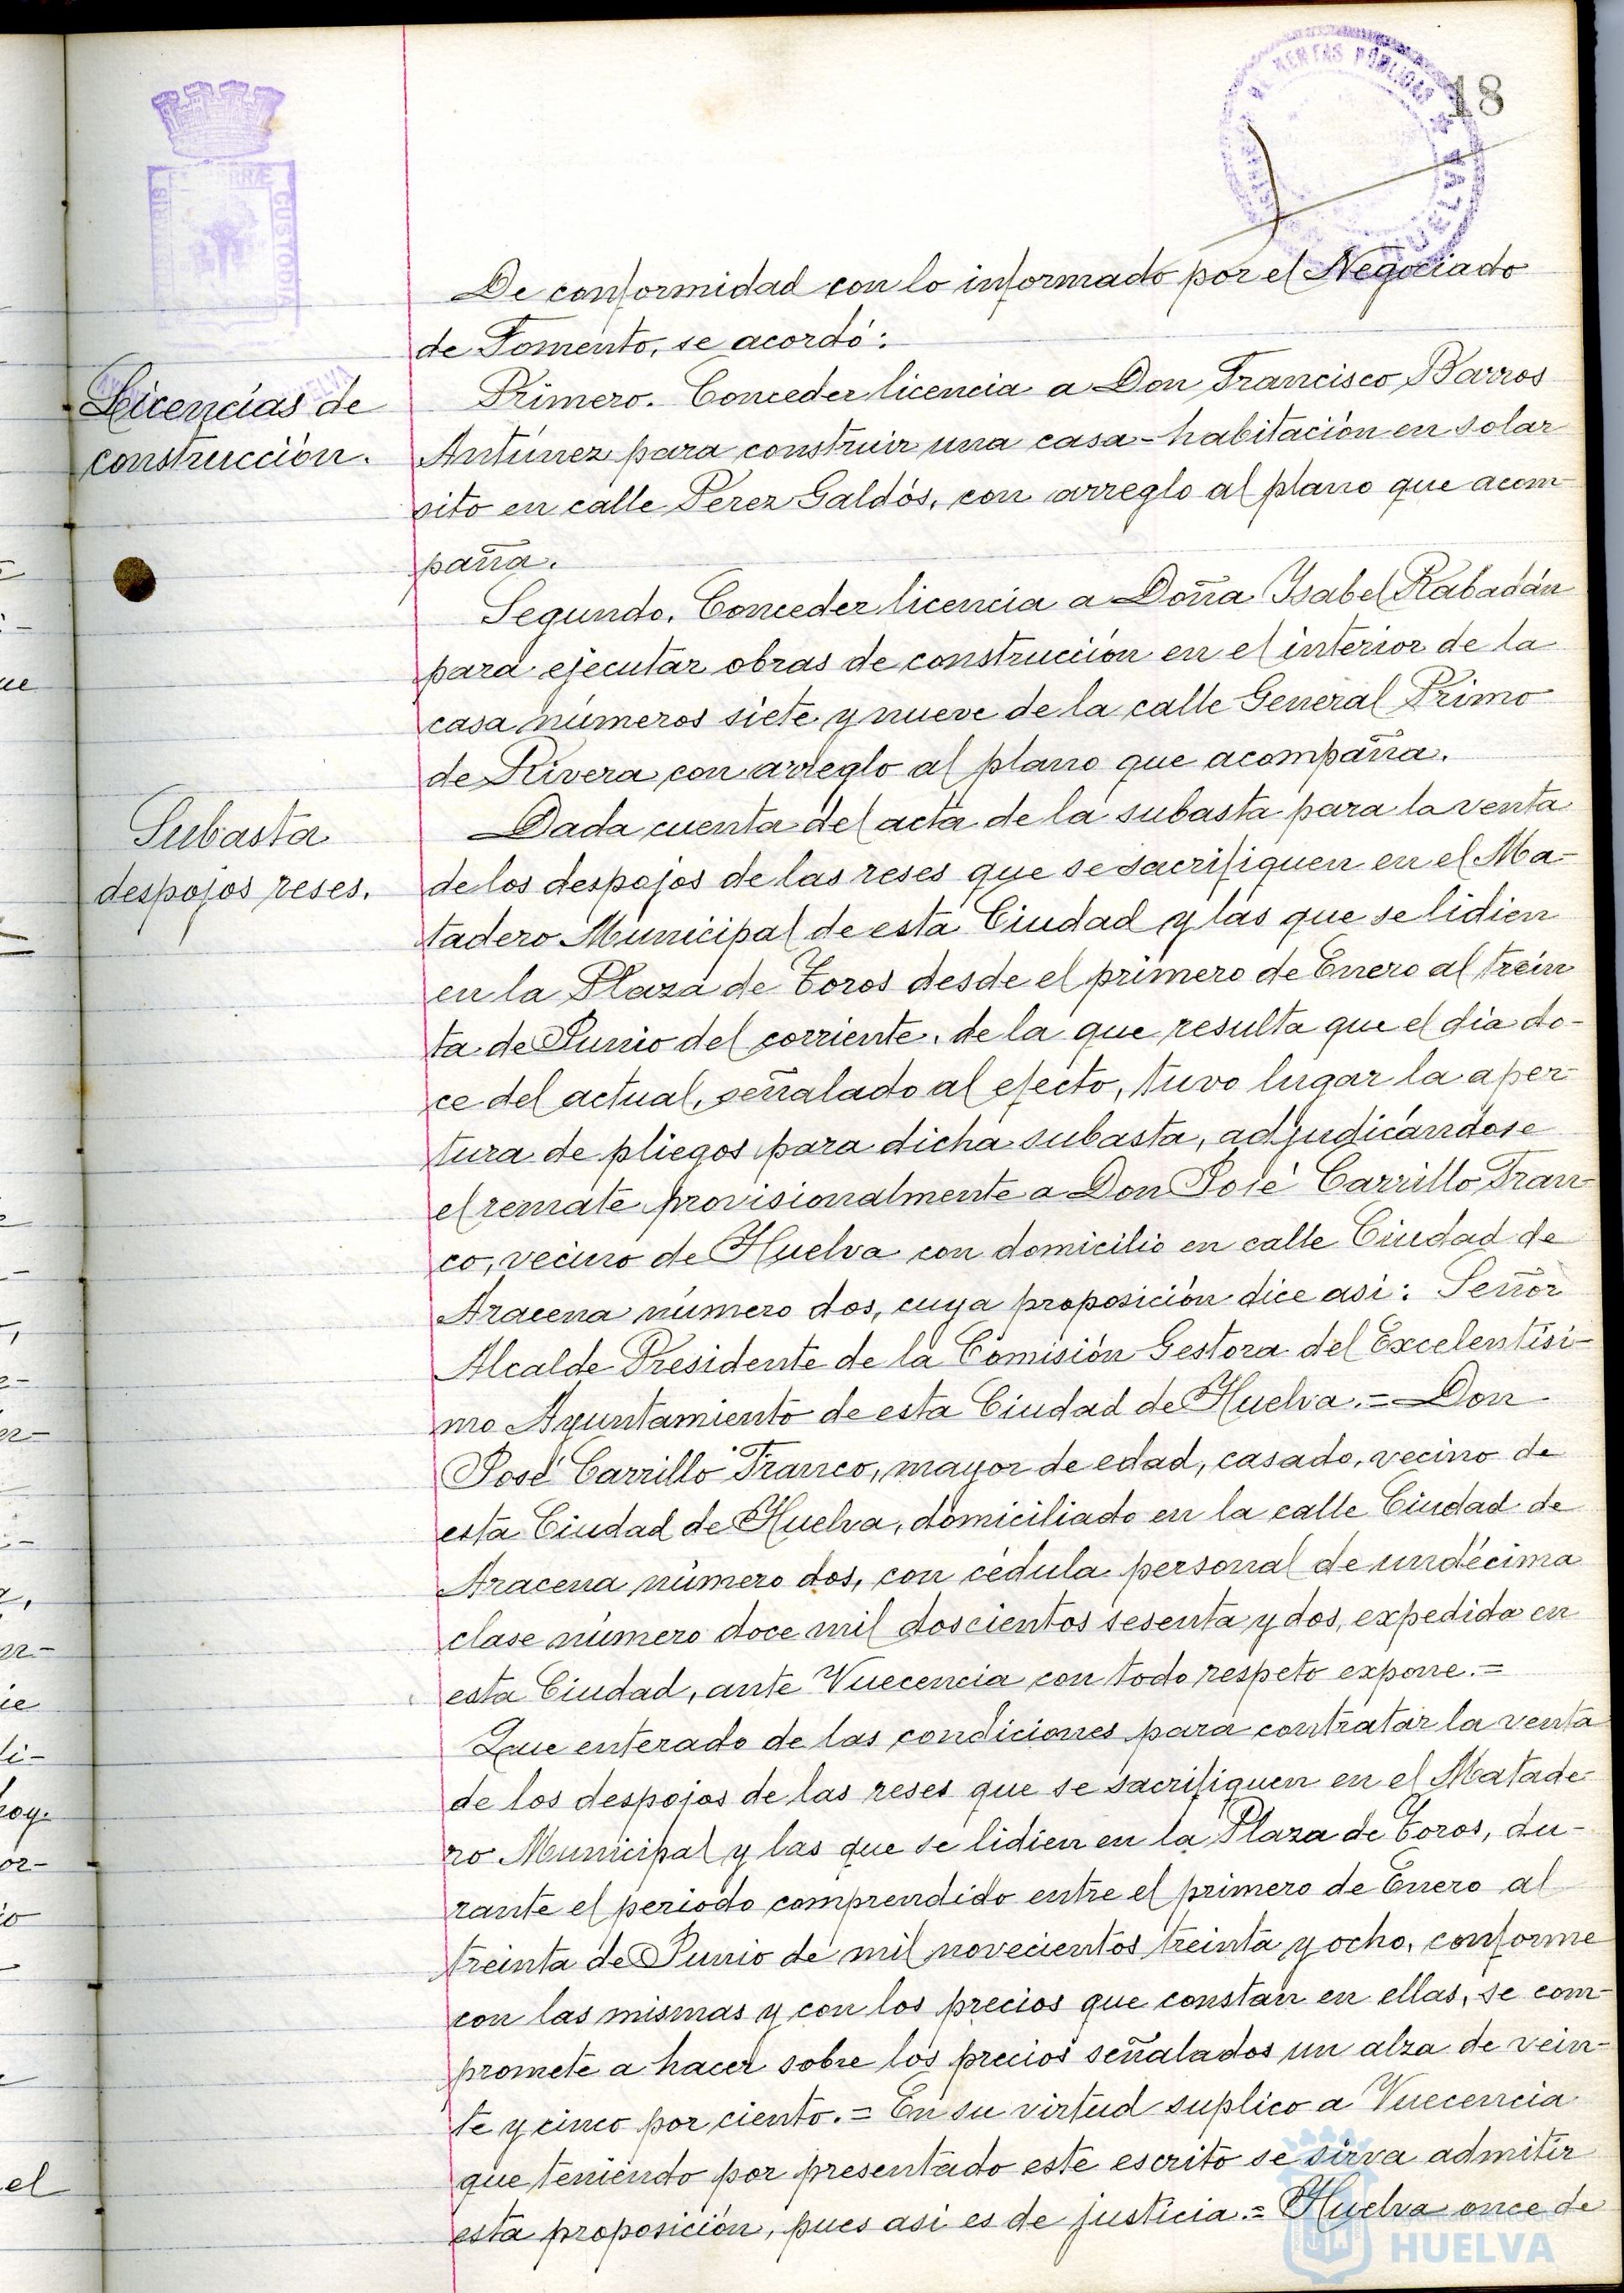 18
DE RENTAS PÚBLICAS
HUELVA
CUSTODIA
De conformidad con lo informado por el Negociado
de Fomento, se acordó:
Licencias de
construcción.
Primero. Conceder licencia a Don Francisco Barros
Antúnez para construir una casa-habitación en solar
sito en calle Perez Galdós, con arreglo al plano que acom-
paña.
Segundo. Conceder licencia a Doña Isabel Rabadán
para ejecutar obras de construcción en el interior de la
casa números siete y nueve de la calle General Primo
de Rivera con arreglo al plano que acompaña.
Subasta
despojos reses.
Dada cuenta del acta de la subasta para la venta
de los despojos de las reses que se sacrifiquen en el Ma-
tadero Municipal de esta Ciudad y las que se lidien
en la Plaza de Toros desde el primero de Enero al trein
ta de Junio del corriente, de la que resulta que el dia do-
ce del actual, señalado al efecto, tuvo lugar la aper-
tura de pliegos para dicha subasta, adjudicándose
el remate provisionalmente a Don José Carrillo Fran-
co, vecino de Huelva con domicilio en calle Ciudad de
Aracena número dos, cuya proposición dice asi: Señor
Alcalde Presidente de la Comisión Gestora del Excelentisi-
mo Ayuntamiento de esta Ciudad de Huelva.= Don
José Carrillo Franco, mayor de edad, casado, vecino de
esta Ciudad de Huelva, domiciliado en la calle Ciudad de
Aracena número dos, con cédula personal de undécima
clase número doce mil doscientos sesenta y dos, expedida en
esta Ciudad, ante Vuecencia con todo respeto expone.=
Que enterado de las condiciones para contratar la venta
de los despojos de las reses que se sacrifiquen en el Matade-
ro Municipal y las que se lidien en la Plaza de Toros, du-
rante el periodo comprendido entre el primero de Enero al
treinta de Junio de mil novecientos treinta y ocho, conforme
con las mismas y con los precios que constan en ellas, se com-
promete a hacer sobre los precios señalados un alza de vein-
te y cinco por ciento.= En su virtud suplico a Vuecencia
que teniendo por presentado este escrito se sirva admitir
esta proposición, pues asi es de justicia.= Huelva once de
HUELVA